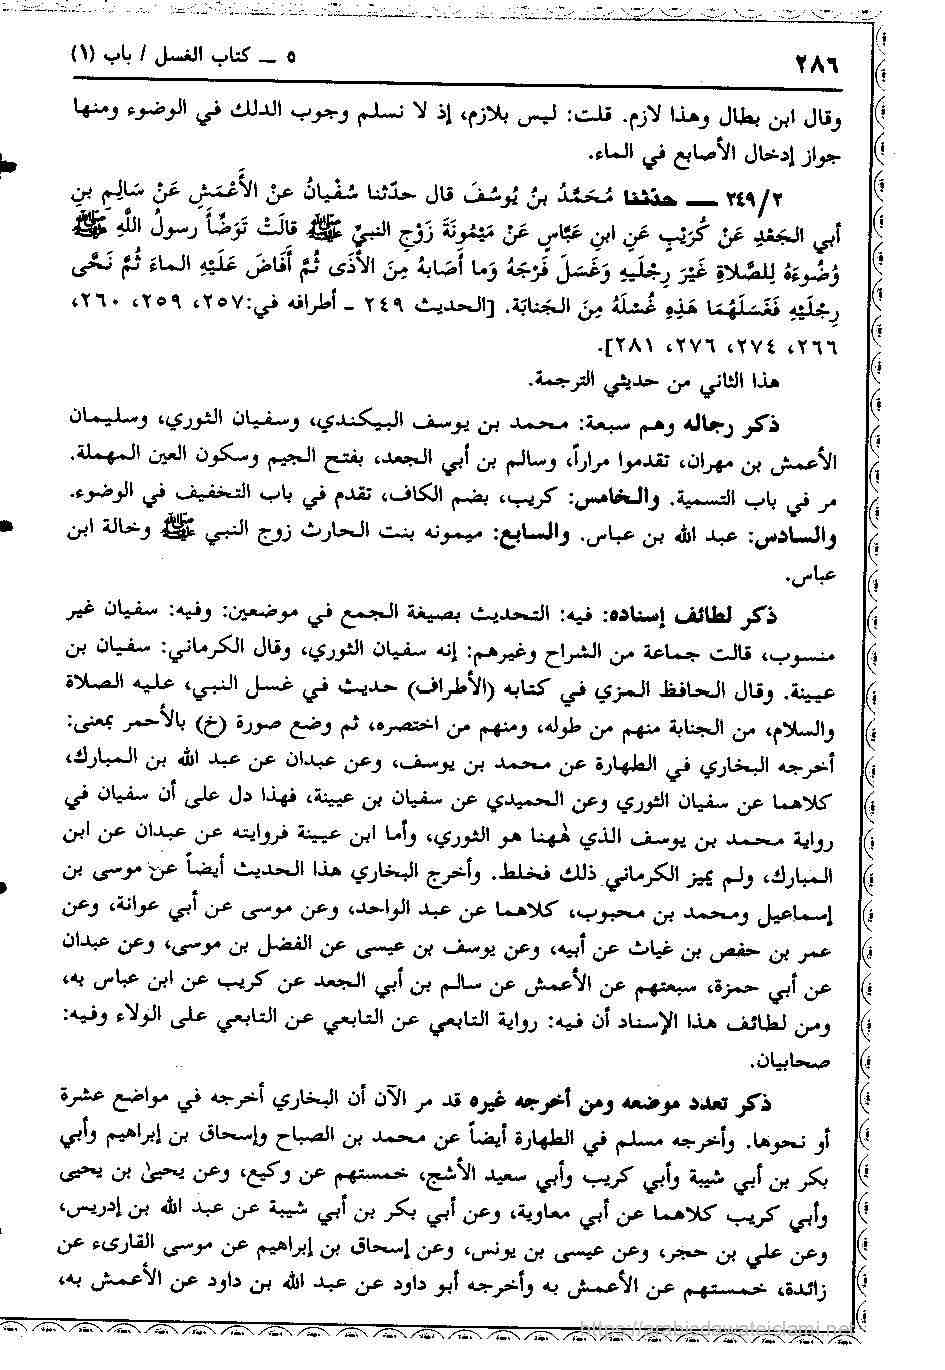 ٢٨٦
٥ ــ كتاب الغسل / باب (١)
وقال ابن بطال وهذا لازم. قلت: ليس بلازم، إذ لا نسلم وجوب الدلك في الوضوء ومنها
جواز إدخال الأصابع في الماء.
٢٤٩/٢ ــ حدّثنا مُحَمَّدُ بنُ يُوسُفَ قال حدّثنا سُفْيانُ عنْ الأَعْمَشِ عَنْ سَالِمِ بنِ
أبي الجَعْدِ عَنْ كُرَيْبٍ عَنِ ابنِ عَبَّاسٍ عَنْ مَيْمُونَةَ زَوْجِ النبيِّ ﷺ قالَتْ تَوَضَّأَ رسولُ اللَّهِ ﷺ
وُضُوءَهُ لِلصَّلاةِ غَيْرَ رِجْلَيهِ وَغَسَلَ فَرْجَهُ وَما أصَابهُ مِنَ الأَذَى ثُمَّ أَفَاضَ عَلَيْهِ الماءَ ثُمَّ نَحَّى
رِجْلَيْهِ فَغَسَلَهُمَا هَذِهِ غُسْلُهُ مِنَ الجَنابَة. [الحديث ٢٤٩ - أطرافه في:٢٥٧، ٢٥٩، ٢٦٠،
٢٦٦، ٢٧٤، ٢٧٦، ٢٨١].
هذا الثاني من حديثي الترجمة.
ذكر رجاله وهم سبعة: محمد بن يوسف البيكندي، وسفيان الثوري، وسليمان
الأعمش بن مهران، تقدموا مراراً، وسالم بن أبي الجعد، بفتح الجيم وسكون العين المهملة.
مر في باب التسمية. والخامس: كريب، بضم الكاف، تقدم في باب التخفيف في الوضوء.
والسادس: عبد الله بن عباس. والسابع: ميمونه بنت الحارث زوج النبي ﷺ وخالة ابن
عباس.
ذكر لطائف إسناده: فيه: التحديث بصيغة الجمع في موضعين: وفيه: سفيان غير
منسوب، قالت جماعة من الشراح وغيرهم: إنه سفيان الثوري، وقال الكرماني: سفيان بن
عيينة. وقال الحافظ المزي في كتابه (الأطراف) حديث في غسل النبي، عليه الصلاة
والسلام، من الجنابة منهم من طوله، ومنهم من اختصره، ثم وضع صورة (خ) بالأحمر بمعنى:
أخرجه البخاري في الطهارة عن محمد بن يوسف، وعن عبدان عن عبد الله بن المبارك،
كلاهما عن سفيان الثوري وعن الحميدي عن سفيان بن عيينة، فهذا دل على أن سفيان في
رواية محمد بن يوسف الذي هٰهنا هو الثوري، وأما ابن عيينة فروايته عن عبدان عن ابن
المبارك، ولم يميز الكرماني ذلك فخلط. وأخرج البخاري هذا الحديث أيضاً عن موسى بن
إسماعيل ومحمد بن محبوب، كلاهما عن عبد الواحد، وعن موسى عن أبي عوانة، وعن
عمر بن حفص بن غياث عن أبيه، وعن يوسف بن عيسى عن الفضل بن موسى، وعن عبدان
عن أبي حمزة، سبعتهم عن الأعمش عن سالم بن أبي الجعد عن كريب عن ابن عباس به،
ومن لطائف هذا الإسناد أن فيه: رواية التابعي عن التابعي عن التابعي على الولاء وفيه:
صحابيان.
ذكر تعدد موضعه ومن أخرجه غيره قد مر الآن أن البخاري أخرجه في مواضع عشرة
أو نحوها. وأخرجه مسلم في الطهارة أيضاً عن محمد بن الصباح وإسحاق بن إبراهيم وأبي
بكر بن أبي شيبة وأبي كريب وأبي سعيد الأشج، خمستهم عن وكيع، وعن يحيىٰ بن يحيى
وأبي كريب كلاهما عن أبي معاوية، وعن أبي بكر بن أبي شيبة عن عبد الله بن إدريس،
وعن علي بن حجر، وعن عيسى بن يونس، وعن إسحاق بن إبراهيم عن موسى القارىء عن
زائدة، خمستهم عن الأعمش به وأخرجه أبو داود عن عبد الله بن داود عن الأعمش به،
https://arabicdawateislami.net